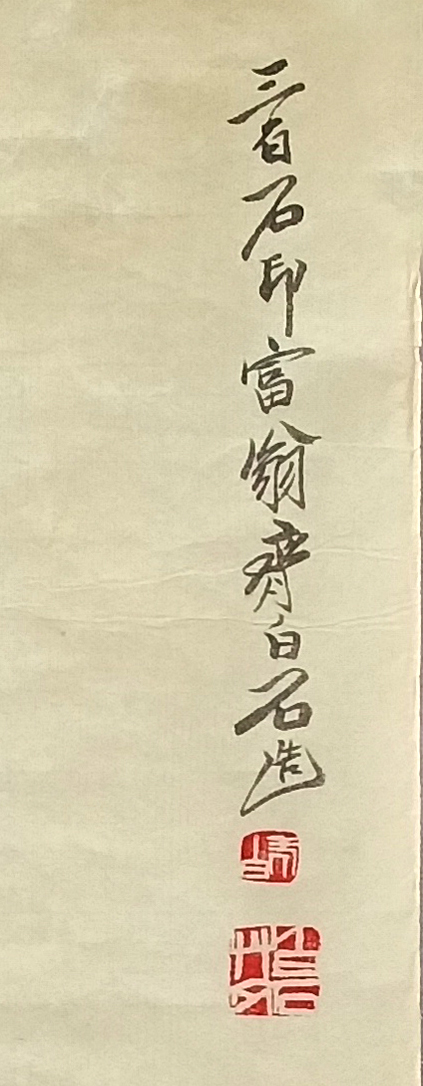 三百石印富翁齊白石造